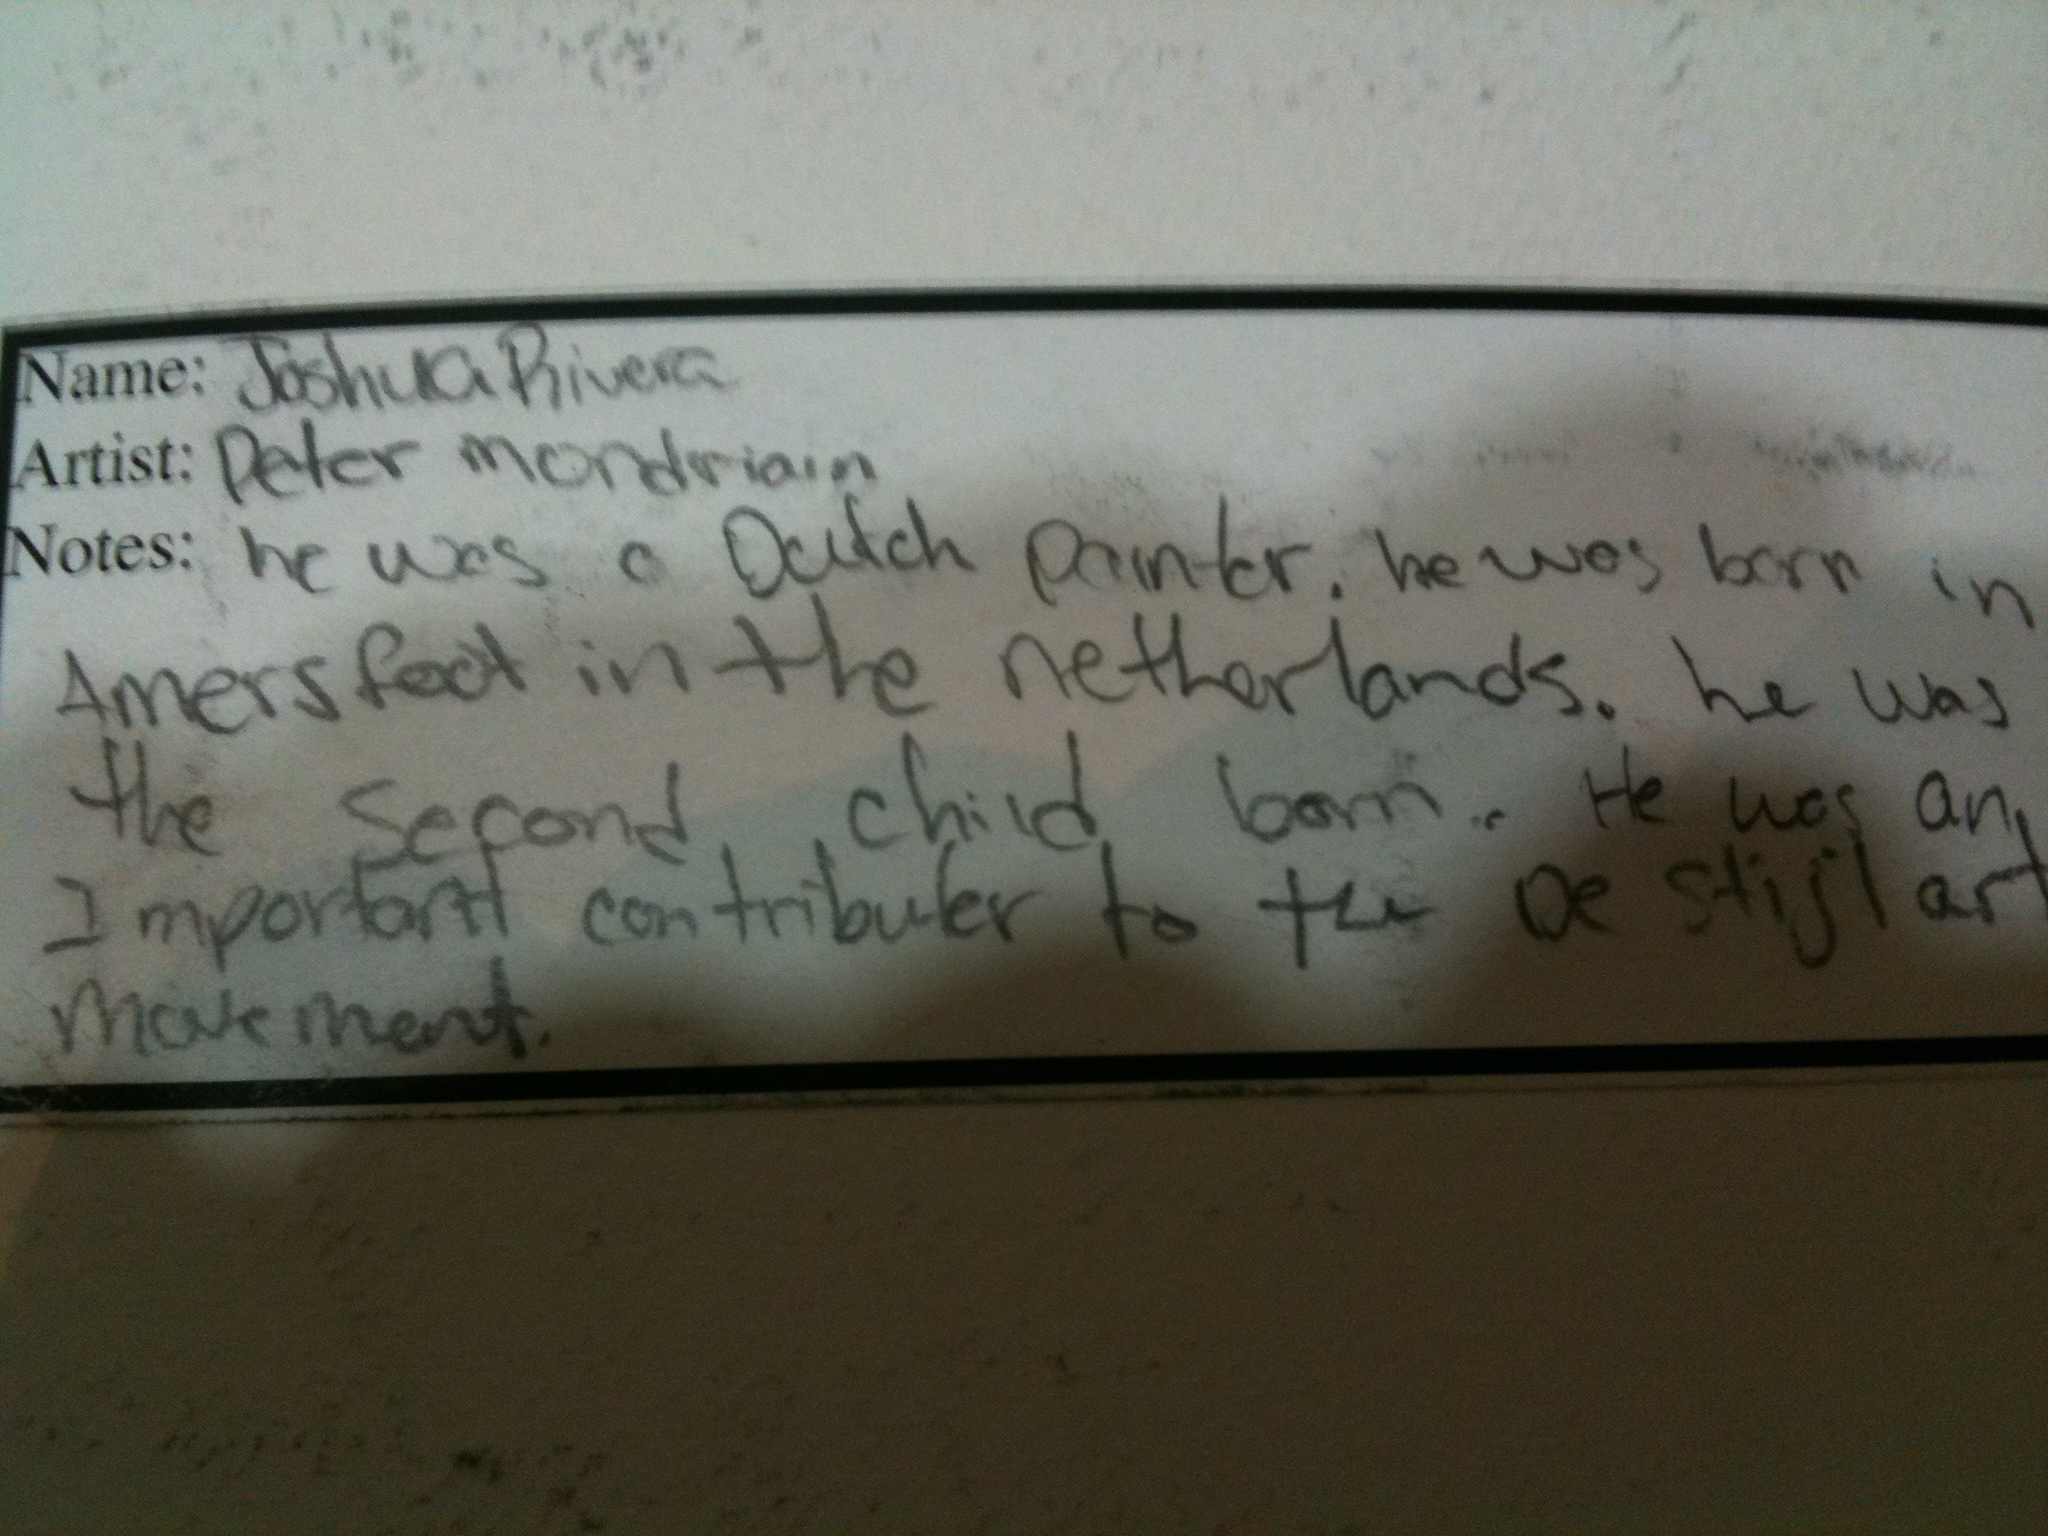 Name: Joshua Rivera
Artist: Peter mondriain
Notes: he was a Dutch painter. he was born in
Amersfoot in the netherlands. he was
the second child born. He was an
Important contributer to the De stijl art
Movement.